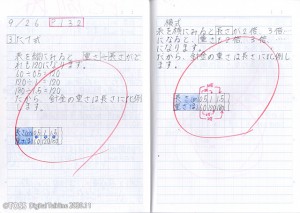 9/26 P.132
3 たて式
表を縦にみると、重さ÷長さがど
れも120になります。
60÷0.5=120
120÷1=120
180÷1.5=120
だから、針金の重さは長さに比例し
ます。
長さ 0.5 1 1.5
重さ 60 120 180
横式
表を横にみると 長さが2倍、3倍
になると、重さも2倍、3倍
になります。
だから、針金の重さは長さに比例し
ます。
長さ 0.5 1 1.5
重さ 60 120 180
©TOSS Digital TokYou 2020.11